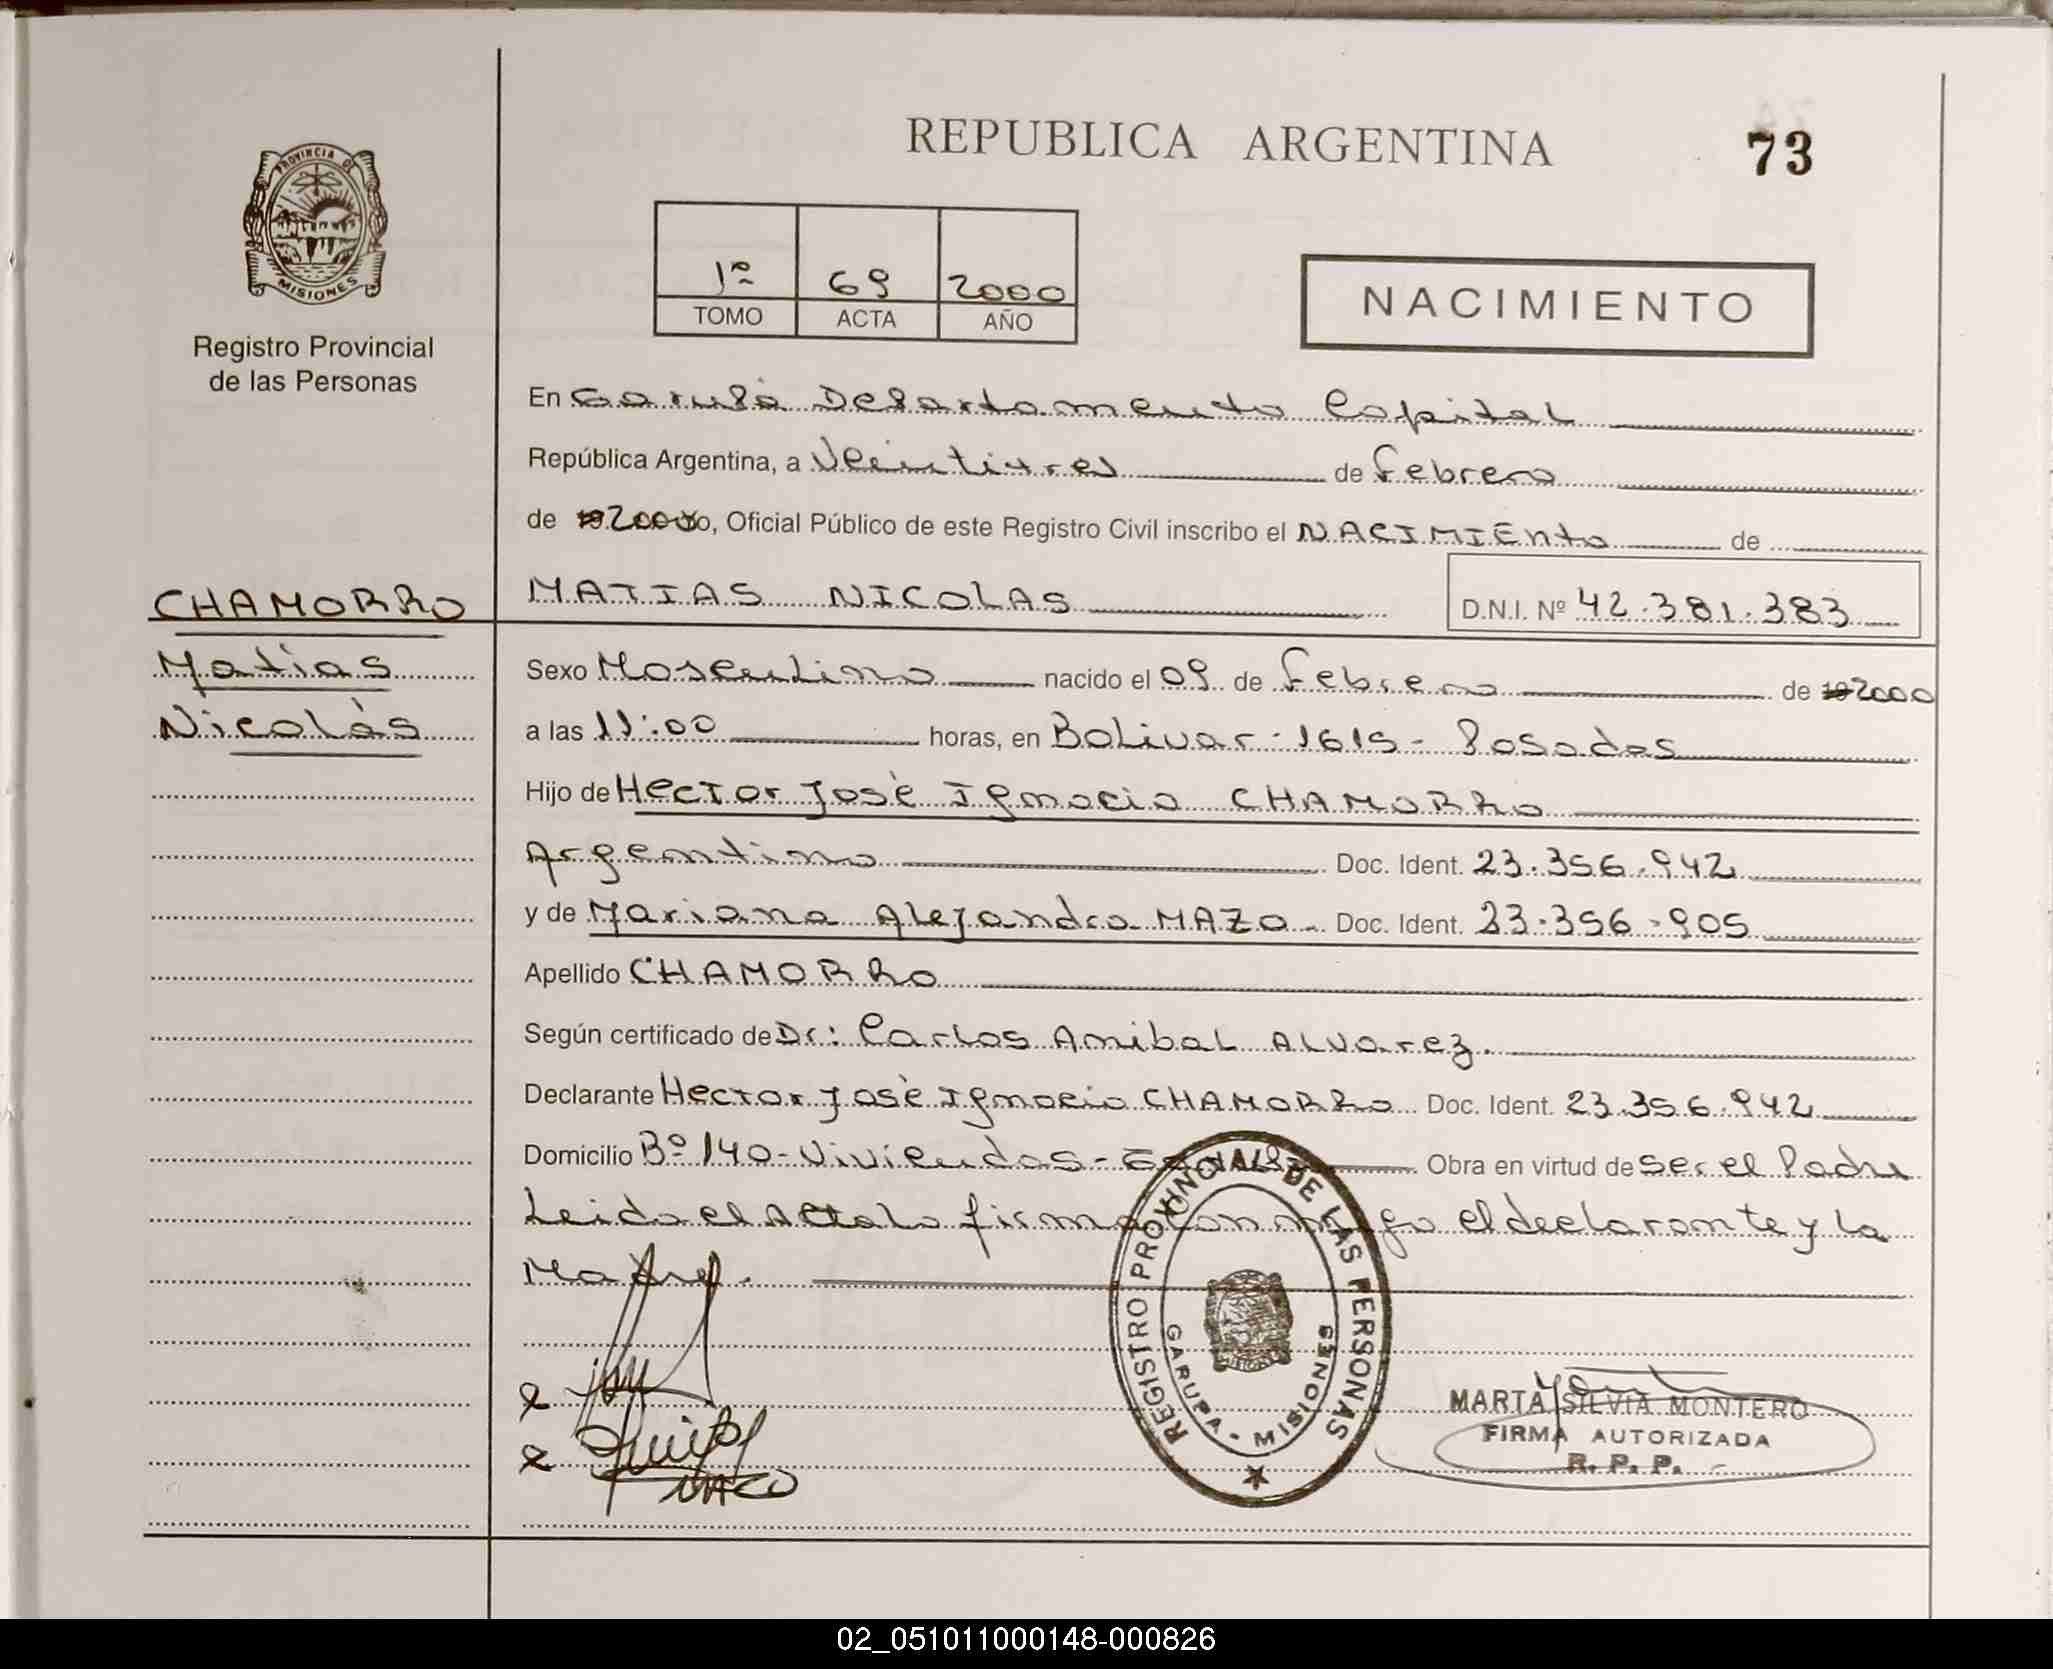 REPUBLICA ARGENTINA
73
PROVINCIA DE
MISIONES
Registro Provincial
de las Personas
1º 69 2000
TOMO ACTA AÑO
NACIMIENTO
En Garupá Departamento Capital
República Argentina, a Veintitres de Febrero
de 19 2000 yo, Oficial Público de este Registro Civil inscribo el NACIMIENTO de
CHAMORRO
Matías
Nicolás
MATIAS NICOLAS D.N.I. Nº 42.381.383
Sexo Masculino nacido el 09 de Febrero de 19 2000
a las 11:00 horas, en Bolivar - 1619 - Posadas
Hijo de Hector José Ignacio CHAMORRO
Argentino Doc. Ident. 23.356.942
y de Mariana Alejandra MAZO Doc. Ident. 23.356.905
Apellido CHAMORRO
Según certificado de Dr: Carlos Anibal ALVarez.
Declarante Hector José Ignacio CHAMORRO Doc. Ident. 23.356.942
Domicilio Bº 140 - Viviendas - Garupá Obra en virtud de Ser el Padre
Leida el Acta la firma con migo el declarante y la
Madre.
REGISTRO PROVINCIAL DE LAS PERSONAS
GARUPA - MISIONES
MARTA SILVIA MONTERO
FIRMA AUTORIZADA
R. P. P.
02_051011000148-000826